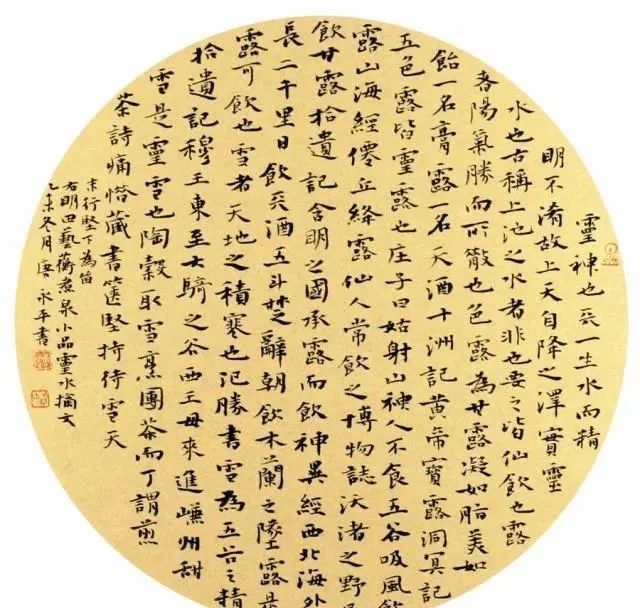 靈神也天一生水而精
明不淆故上天自降之澤實靈
水也古稱上池之水者非也要之皆仙飲也露
者陽氣勝而所散也色露為甘露凝如脂美如
飴一名膏露一名天酒十洲記黃帝寶露洞冥記
五色露皆靈露也庄子曰姑射山神人不食五谷吸風飲
露山海經僊丘絳露仙人常飲之博物誌沃渚之野
飲甘露拾遺記含明之國承露而飲神異經西北海外
長二千里日飲天酒五斗楚辭朝飲木蘭之墜露是
露可飲也雪者天地之積寒也氾勝書雪為五谷之精
拾遺記穆王東至大騎之谷西王母來進嵰州甜
雪是靈雪也陶穀取雪烹團茶而丁謂煎
茶詩痛惜藏書篋堅持待雪天
末行堅下為笛
右明田藝蘅煮泉小品靈水摘文
乙未冬月唐永平書